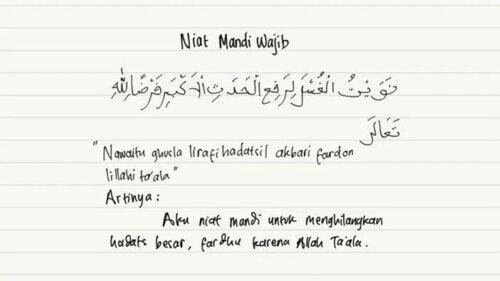 Niat Mandi Wajib
نَوَيْتُ الْغُسْلَ لِرَفْعِ الْحَدَثِ الْاَكْبَرِ فَرْضًا لِلّٰهِ
تَعَالَى
"Nawaitu ghusla lirafi hadatsil akbari fardon
lillahi ta'ala"
Artinya :
Aku niat mandi untuk menghilangkan
hadats besar, fardhu karena Allah Ta'ala.